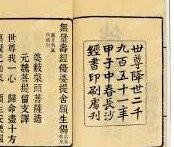 世尊降世二千
九百五十一年
甲子中春長沙
經書印刷局刋
無量壽經優婆提舍願生偈
婆藪槃頭菩薩造
元魏菩提留支譯
世尊我一心 歸命盡十方